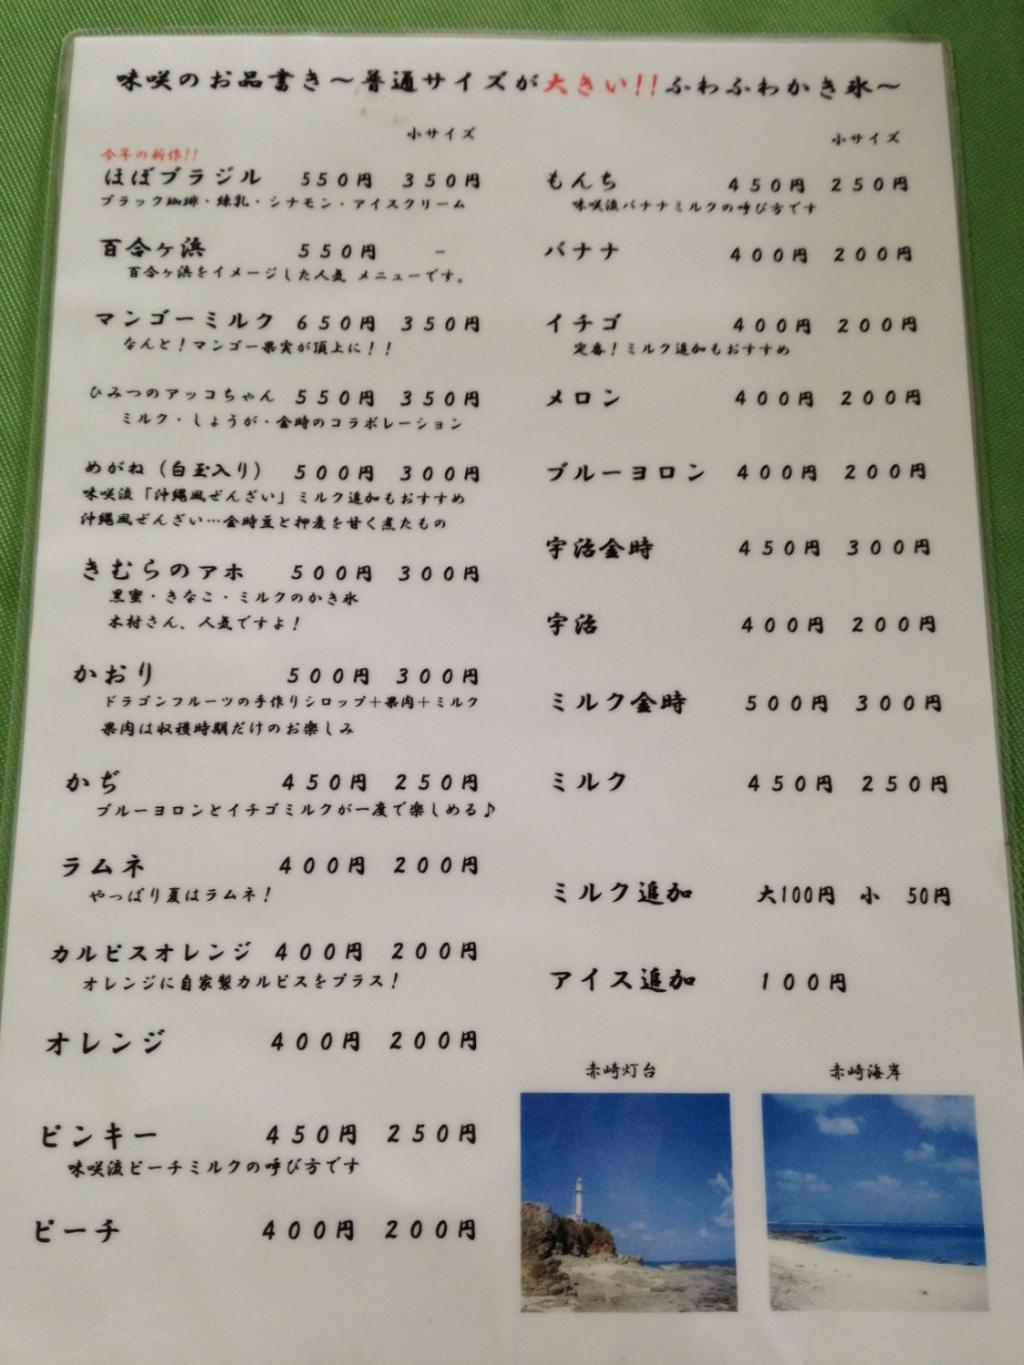 味咲のお品書き～普通サイズが大きい!!ふわふわかき氷～
小サイズ
今年の新作!!
ほぼブラジル 550円 350円
ブラック珈琲・練乳・シナモン・アイスクリーム
百合ヶ浜 550円 －
百合ヶ浜をイメージした人気 メニューです。
マンゴーミルク 650円 350円
なんと！マンゴー果実が頂上に！！
ひみつのアッコちゃん 550円 350円
ミルク・しょうが・金時のコラボレーション
めがね（白玉入り） 500円 300円
味咲流「沖縄風ぜんざい」ミルク追加もおすすめ
沖縄風ぜんざい…金時豆と押麦を甘く煮たもの
きむらのアホ 500円 300円
黒蜜・きなこ・ミルクのかき氷
木村さん、人気ですよ！
かおり 500円 300円
ドラゴンフルーツの手作りシロップ＋果肉＋ミルク
果肉は収穫時期だけのお楽しみ
かぢ 450円 250円
ブルーヨロンとイチゴミルクが一度で楽しめる♪
ラムネ 400円 200円
やっぱり夏はラムネ！
カルピスオレンジ 400円 200円
オレンジに自家製カルピスをプラス！
オレンジ 400円 200円
ピンキー 450円 250円
味咲流ピーチミルクの呼び方です
ピーチ 400円 200円
小サイズ
もんち 450円 250円
味咲流バナナミルクの呼び方です
バナナ 400円 200円
イチゴ 400円 200円
定番！ミルク追加もおすすめ
メロン 400円 200円
ブルーヨロン 400円 200円
宇治金時 450円 300円
宇治 400円 200円
ミルク金時 500円 300円
ミルク 450円 250円
ミルク追加 大100円 小 50円
アイス追加 100円
赤崎灯台
赤崎海岸